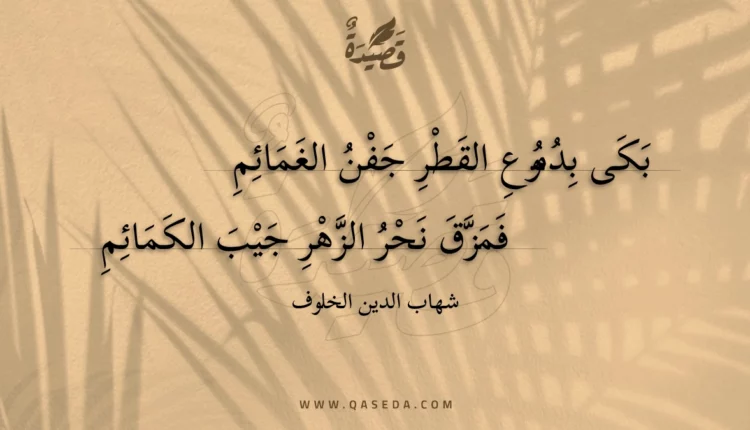 قَصِيْدَةٌ
بَكَى بِدُمُوعِ القَطْرِ جَفْنُ الغَمَائِمِ
فَمَزَّقَ نَحْرُ الزَّهْرِ جَيْبَ الكَمَائِمِ
شهاب الدين الخلوف
WWW.QASEDA.COM